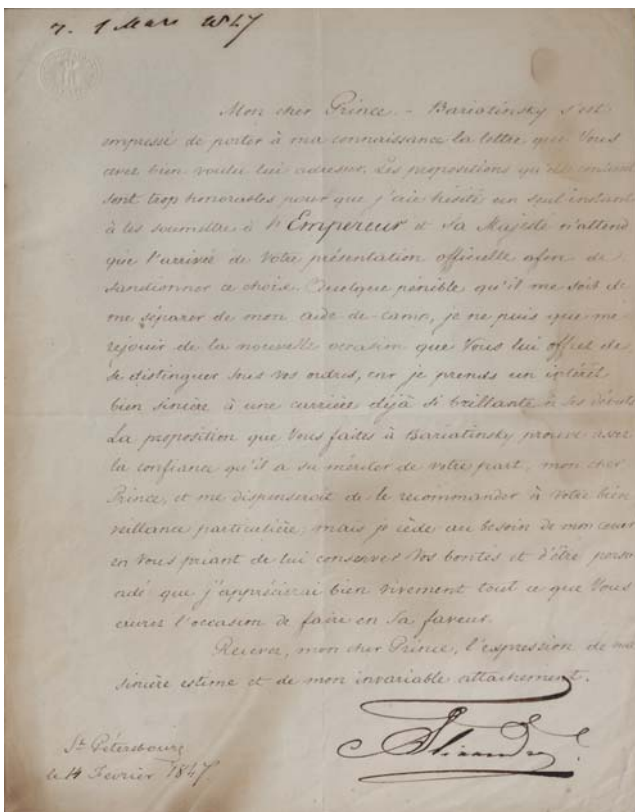 1 Mars 1847
Mon cher Prince. – Bariatinsky s'est
empressé de porter à ma connaissance la lettre que Vous
avez bien voulu lui adresser. Les propositions qu'elle contient
sont trop honorables pour que j'aie hésité un seul instant
à les soumettre à l'Empereur et Sa Majesté n'attend
que l'arrivée de Votre présentation officielle afin de
sanctionner ce choix. Quelque pénible qu'il me soit de
me séparer de mon aide-de-camp, je ne puis que me
réjouir de la nouvelle occasion que Vous lui offrez de
se distinguer sous Vos ordres, car je prends un intérêt
bien sincère à une carrière déjà si brillante à ses débuts.
La proposition que Vous faites à Bariatinsky prouve assez
la confiance qu'il a su mériter de votre part, mon cher
Prince, et me dispenserait de le recommander à Votre bien
veillance particulière; mais je cède au besoin de mon coeur
en Vous priant de lui conserver Vos bontés et d'être persu
adé que j'apprécierai bien vivement tout ce que Vous
aurez l'occasion de faire en Sa faveur.
Recevez, mon cher Prince, l'expression de ma
sincère estime et de mon invariable attachement.
Alexandre
St Pétersbourg
le 14 Février 1847